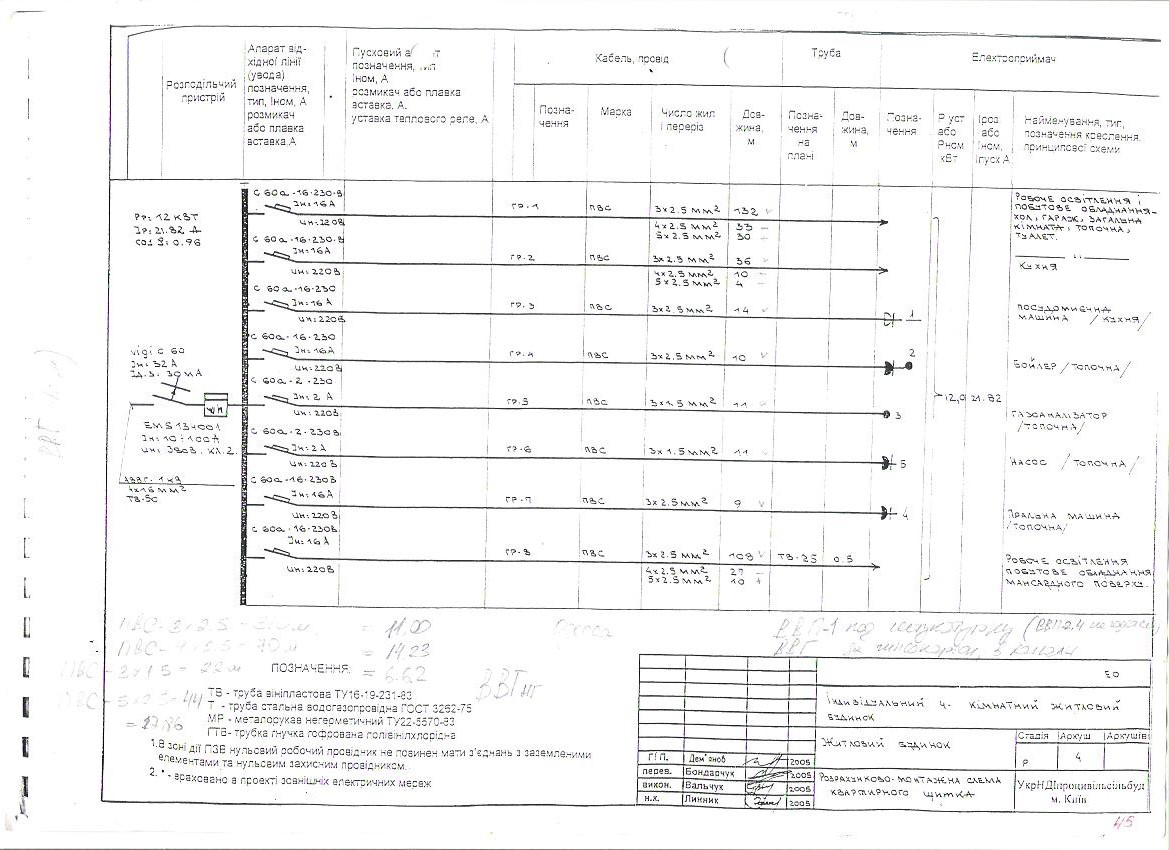 Розподільчий
пристрій
Апарат від-
хідної лінії
(увода)
позначення,
тип, Іном, А
розмикач
або плавка
вставка,А
Пусковий
позначення,
Іном, А
розмикач або плавка
вставка, А.
уставка теплового реле, А
Кабель, провід
Труба
Електроприймач
Позна-
чення
Марка
Число жил
і переріз
Дов-
жина,
м
Позна-
чення
на
плані
Дов-
жина,
м
Позна-
чення
Р уст
або
Рном
кВт
Іроз
або
Іном,
Іпуск А
Найменування, тип,
позначення креслення,
принципової схеми
Рр: 12 кВт
Iр: 21.82 А
cos φ: 0.96
vigi C 60
Iн: 32 А
Iд.з. 30 мА
Wh
EMS 134001
Iн: 10÷100А
Uн: 380В. кл.2.
4х16 мм²
ТВ-50
C 60a-16-230-В
Iн: 16А
Uн: 220В
ГР-1
ПВС
3х2.5 мм²
132
4х2.5 мм²
33
5х2.5 мм²
30
Робоче освітлення і
побутове обладнання-
хол, гараж, загальна
кімната, топочна,
туалет.
C 60a-16-230-В
Iн: 16А
Uн: 220В
ГР-2
ПВС
3х2.5 мм²
36
4х2.5 мм²
10
5х2.5 мм²
4
— " —
Кухня
C 60a-16-230
Iн: 16А
Uн: 220В
ГР-3
ПВС
3х2.5 мм²
14
1
Посудомиєчна
машина /кухня/
C 60a-16-230
Iн: 16А
Uн: 220В
ГР-4
ПВС
3х2.5 мм²
10
2
Бойлер /топочна/
C 60a-2-230
Iн: 2А
Uн: 220В
ГР-5
ПВС
3х1.5 мм²
11
3
12,0 21.82
Газоаналізатор
/топочна/
C 60a-2-230В
Iн: 2А
Uн: 220В
ГР-6
ПВС
3х1.5 мм²
11
5
Насос /топочна/
C 60a-16-230В
Iн: 16А
Uн: 220В
ГР-7
ПВС
3х2.5 мм²
9
4
Пральна машина
/топочна/
C 60a-16-230В
Iн: 16А
Uн: 220В
ГР-8
ПВС
3х2.5 мм²
108
ТВ-25
0.5
4х2.5 мм²
27
5х2.5 мм²
10
Робоче освітлення
побутове обладнання
мансардного поверху.
= 11.00
= 14.23
ПВС-3х1.5 = 22 м
= 6.62
ВВГнг
ПОЗНАЧЕННЯ:
ТВ - труба вініпластова ТУ16-19-231-83
Т - труба стальна водогазопровідна ГОСТ 3262-75
МР - металорукав негерметичний ТУ22-5570-83
ГТВ-трубка гнучка гофрована полівінілхлорідна
1.В зоні дії ПЗВ нульовий робочий провідник не повинен мати з'єднань з заземленими
елементами та нульовим захисним провідником.
2. * - враховано в проекті зовнішніх електричних мереж
ЕО
Індивідуальний 4-кімнатний житловий
будинок
Житловий будинок
Стадія
Аркуш
Аркушів
Р
4
ГІП.
Дем'яноб
2005
перев.
Бондарчук
2005
викон.
Вальчук
2005
н.х.
Линник
2005
Розрахунково-монтажна схема
квартирного щитка
УкрНДІпроцивільсільбуд
м. Київ
45